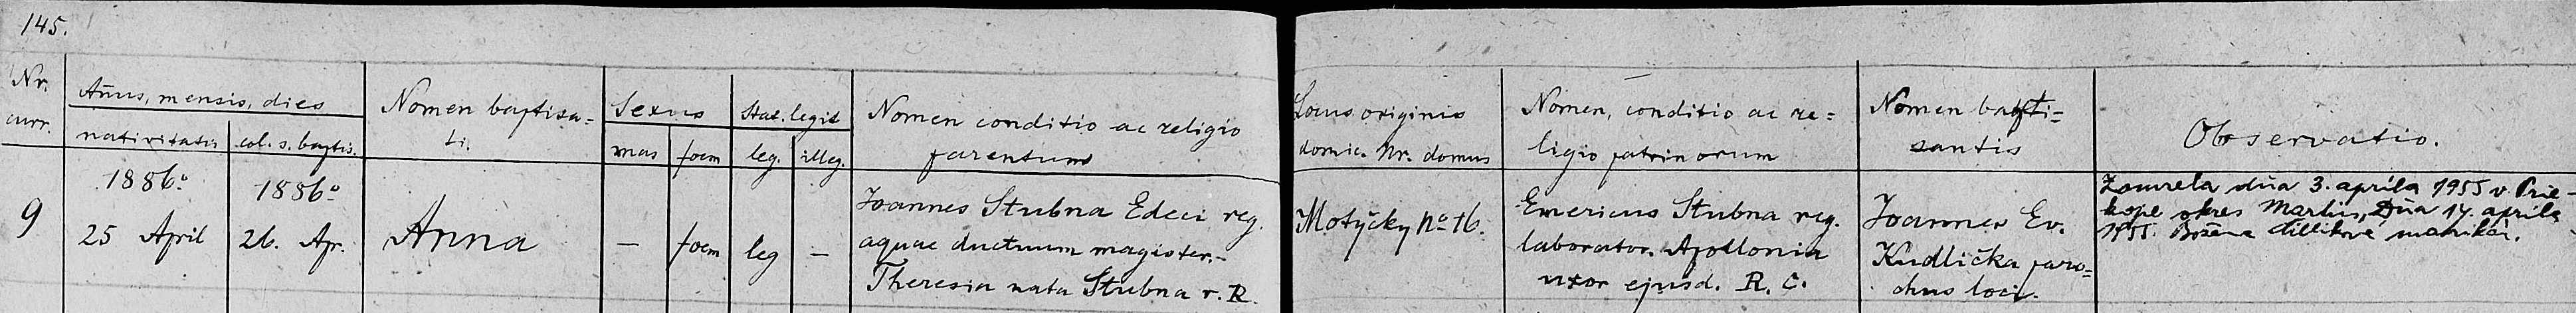 145.
Nr. curr.
Añus, mensis, dies
nativitatis
col. s. baptis.
Nomen baptisa=
ti.
Sexus
mas
foem
Stat. legit
leg.
illeg.
Nomen conditio ac religio
parentum
Locus originis
domic. Nr. domus
Nomen, conditio ac re=
ligio patrinorum
Nomen bapti=
santis
Observatio.
9
1886º
25 April
1886º
26. Apr.
Anna
—
foem
leg
—
Joannes Stubna Edeci reg.
aquae ductuum magister.-
Theresia nata Stubna r. R.
Motyčky Nº 16.
Emericus Stubna reg.
laborator. Apollonia
uxor ejusd. R. C.
Joannes Ev.
Kudlička paro=
chus loci.
Zomrela dňa 3. apríla 1955 v Prie-
kope okres Martin, Dňa 14. apríla
1955. Božena matrikár.